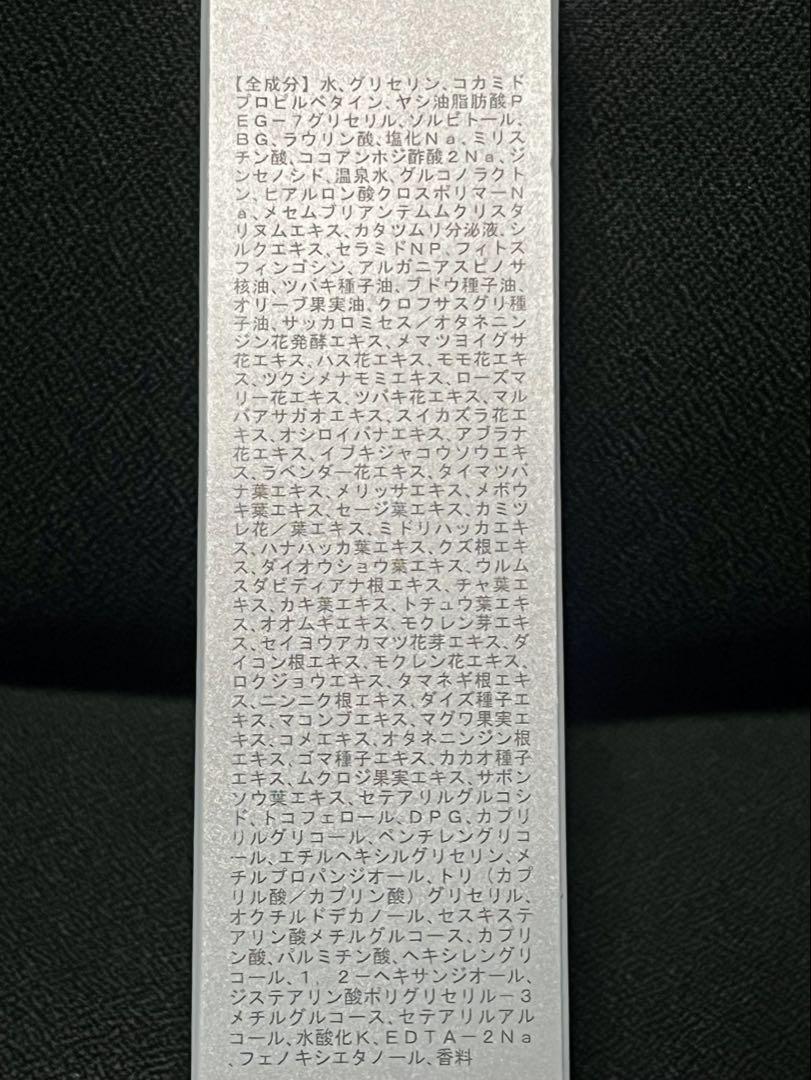 【全成分】水、グリセリン、コカミド
プロピルベタイン、ヤシ油脂肪酸P
EG－7グリセリル、ソルビトール、
BG、ラウリン酸、塩化Na、ミリス
チン酸、ココアンホジ酢酸2Na、ジ
ンセノシド、温泉水、グルコノラクト
ン、ヒアルロン酸クロスポリマーN
a、メセムブリアンテムムクリスタ
リヌムエキス、カタツムリ分泌液、シ
ルクエキス、セラミドNP、フィトス
フィンゴシン、アルガニアスピノサ
核油、ツバキ種子油、ブドウ種子油、
オリーブ果実油、クロフサスグリ種
子油、サッカロミセス／オタネニン
ジン花発酵エキス、メマツヨイグサ
花エキス、ハス花エキス、モモ花エキ
ス、ツクシメナモミエキス、ローズマ
リー花エキス、ツバキ花エキス、マル
バアサガオエキス、スイカズラ花エ
キス、オシロイバナエキス、アブラナ
花エキス、イブキジャコウソウエキ
ス、ラベンダー花エキス、タイマツバ
ナ葉エキス、メリッサエキス、メボウ
キ葉エキス、セージ葉エキス、カミツ
レ花／葉エキス、ミドリハッカエキ
ス、ハナハッカ葉エキス、クズ根エキ
ス、ダイオウショウ葉エキス、ウルム
スダビディアナ根エキス、チャ葉エ
キス、カキ葉エキス、トチュウ葉エキ
ス、オオムギエキス、モクレン芽エキ
ス、セイヨウアカマツ花芽エキス、ダ
イコン根エキス、モクレン花エキス、
ロクジョウエキス、タマネギ根エキ
ス、ニンニク根エキス、ダイズ種子エ
キス、マコンブエキス、マグワ果実エ
キス、コメエキス、オタネニンジン根
エキス、ゴマ種子エキス、カカオ種子
エキス、ムクロジ果実エキス、サボン
ソウ葉エキス、セテアリルグルコシ
ド、トコフェロール、DPG、カプリ
リルグリコール、ペンチレングリコ
ール、エチルヘキシルグリセリン、メ
チルプロパンジオール、トリ（カプ
リル酸／カプリン酸）グリセリル、
オクチルドデカノール、セスキステ
アリン酸メチルグルコース、カプリ
ン酸、パルミチン酸、ヘキシレングリ
コール、1，2－ヘキサンジオール、
ジステアリン酸ポリグリセリル－3
メチルグルコース、セテアリルアル
コール、水酸化K、EDTA－2Na
、フェノキシエタノール、香料